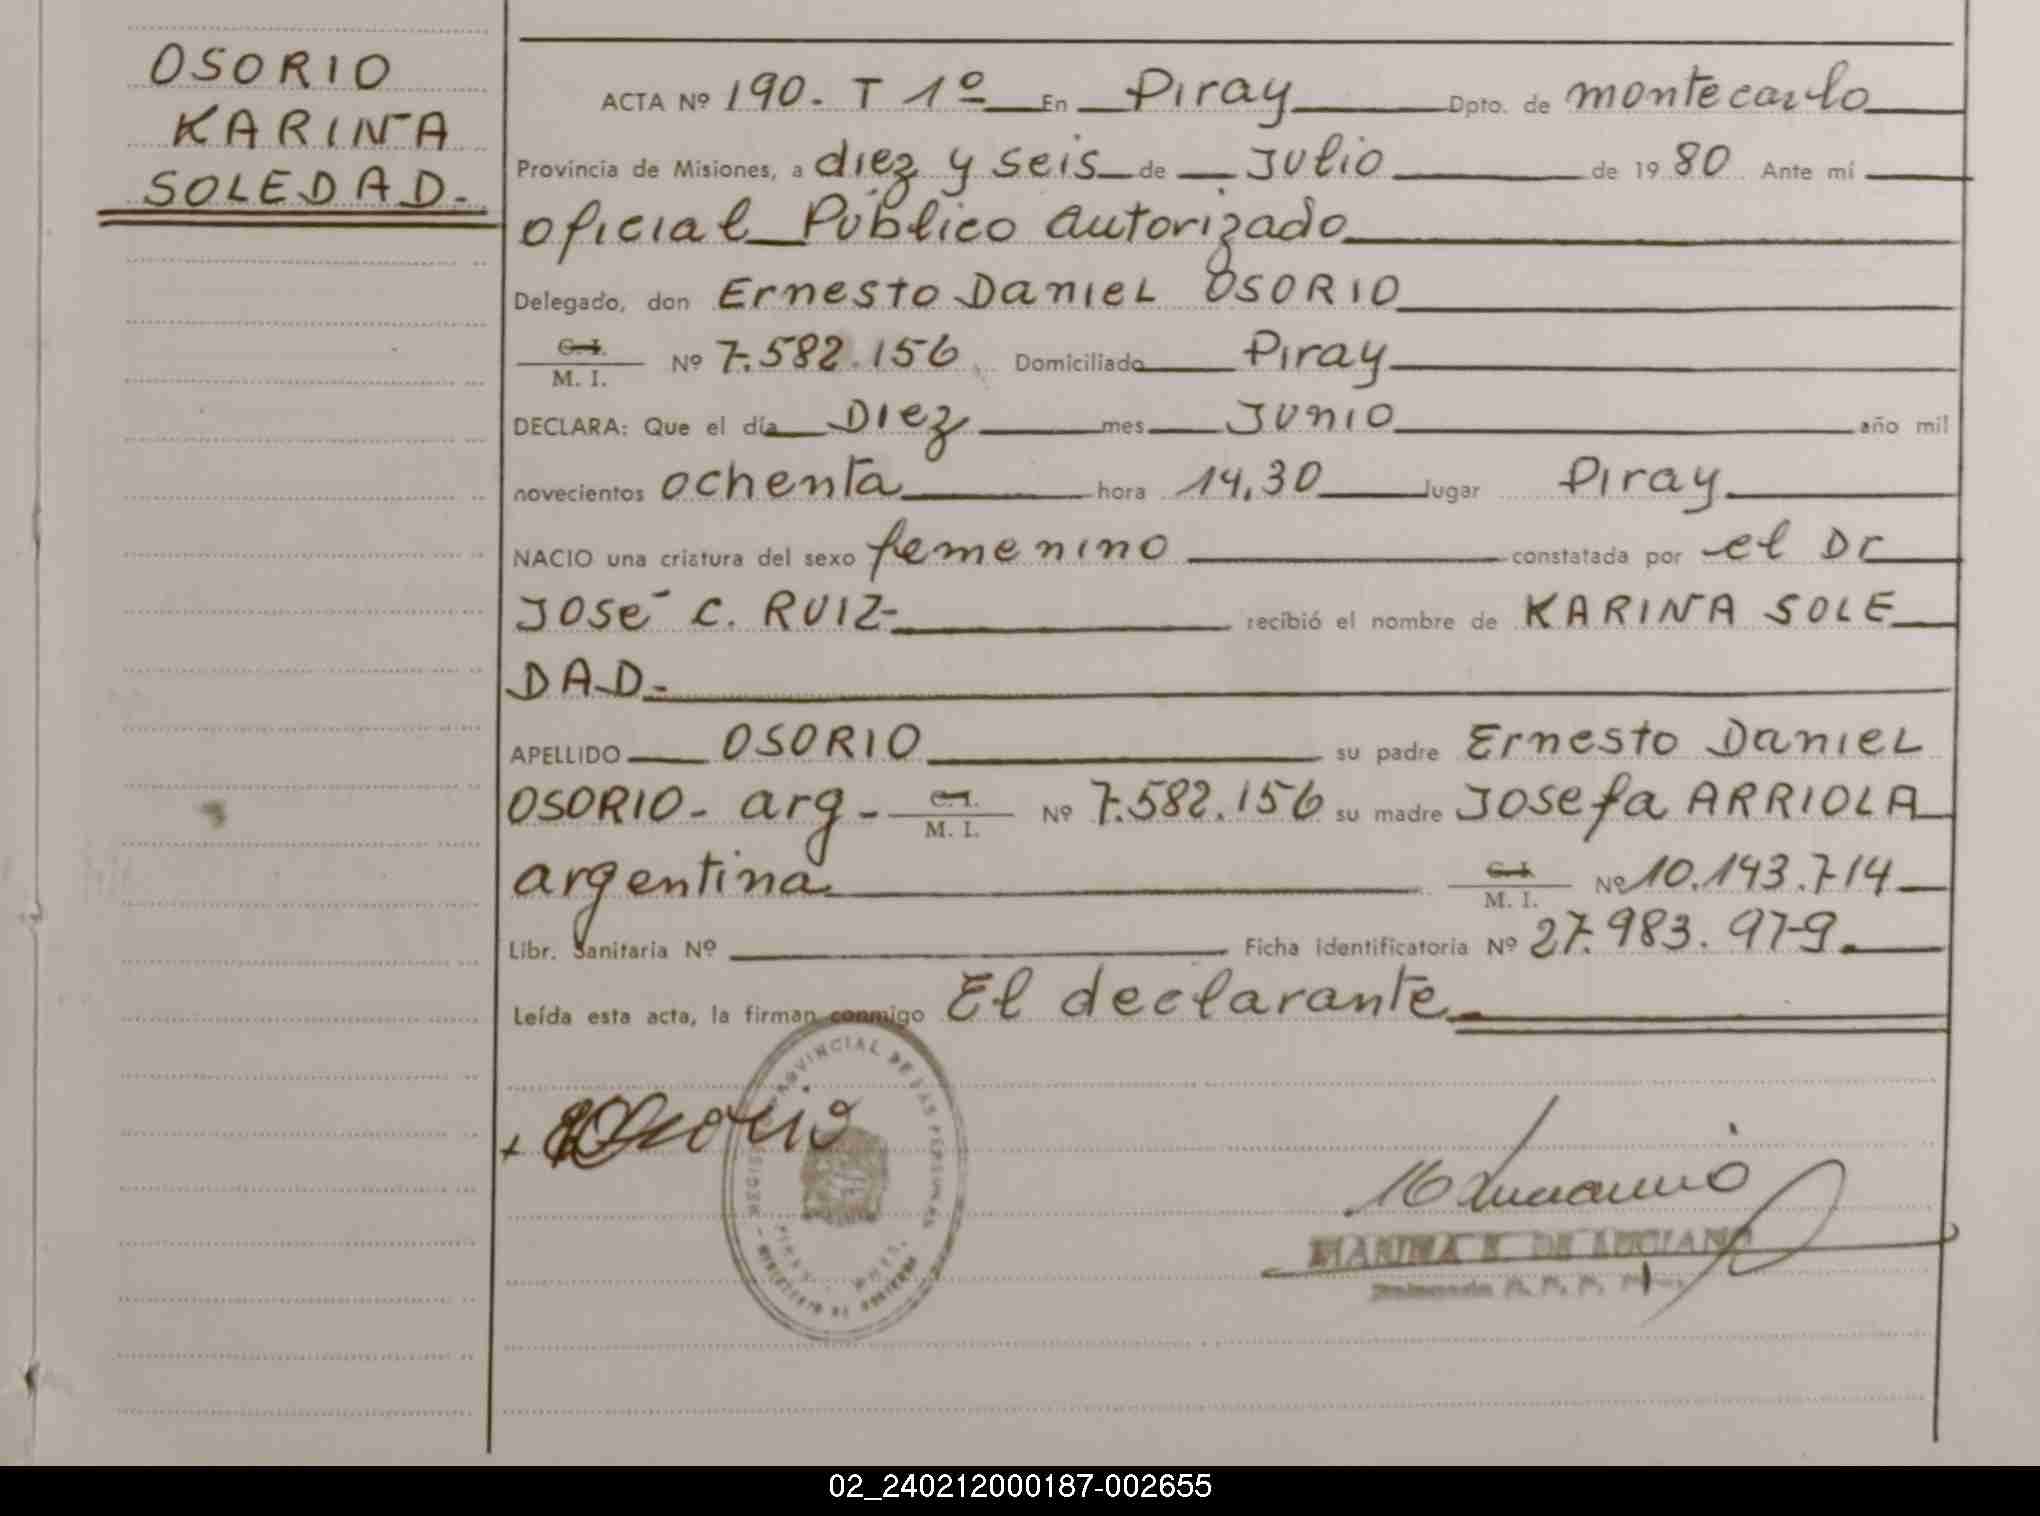 OSORIO
KARINA
SOLEDAD.
ACTA Nº 190. T 1º En Piray Dpto. de montecarlo
Provincia de Misiones, a diez y seis de Julio de 1980 Ante mí
oficial Público autorizado
Delegado, don Ernesto Daniel OSORIO
C. I.
M. I. Nº 7.582.156 Domiciliado Piray
DECLARA: Que el día Diez mes Junio año mil
novecientos ochenta hora 14,30 lugar Piray
NACIO una criatura del sexo femenino constatada por el Dr
José C. RUIZ- recibió el nombre de KARINA SOLE
DAD-
APELLIDO OSORIO su padre Ernesto Daniel
OSORIO- arg- C. I. M. I. Nº 7.582.156 su madre Josefa ARRIOLA
argentina C. I. M. I. Nº 10.143.714
Libr. Sanitaria Nº Ficha identificatoria Nº 27.983.979.
Leída esta acta, la firman conmigo El declarante
PROVINCIAL DE LAS PERSONAS
MINISTERIO DE GOBIERNO
EOsorio
DE LUCIANO
02_240212000187-002655